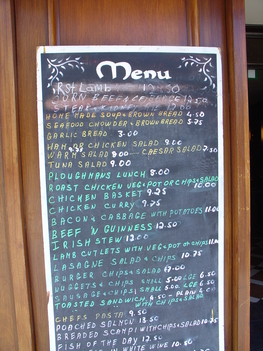 Menu
IRISH LAMB 12.50
CORN BEEF & CABBAGE 12.50
STEAK
HOME MADE SOUP & BROWN BREAD 4.50
SEAFOOD CHOWDER & BROWN BREAD 5.75
GARLIC BREAD 3.00
HAM OR CHICKEN SALAD 9.00
WARM SALAD 9.00 CAESAR SALAD 7.50
TUNA SALAD 9.00
PLOUGHMANS LUNCH 8.00
ROAST CHICKEN VEG & POT OR CHIPS & SALAD 10.00
CHICKEN BASKET 9.25
CHICKEN CURRY 9.75
BACON & CABBAGE WITH POTATOES 11.00
BEEF 'N GUINNESS 12.50
IRISH STEW 12.00
LAMB CUTLETS WITH VEG & POT OR CHIPS
LASAGNE SALAD & CHIPS 10.75
BURGER CHIPS & SALAD
NUGGETS & CHIPS SMALL 5.00 LGE 6.50
SAUSAGE & CHIPS SMALL 5.00 LGE 6.50
TOASTED SANDWICH 4.50 - PLAIN 4.00
WITH CHIPS & SALAD
CHEFS PASTA 9.50
POACHED SALMON 13.50
BREADED SCAMPI WITH CHIPS & SALAD 10.75
FISH OF THE DAY 12.50
WHITE WINE 10.50